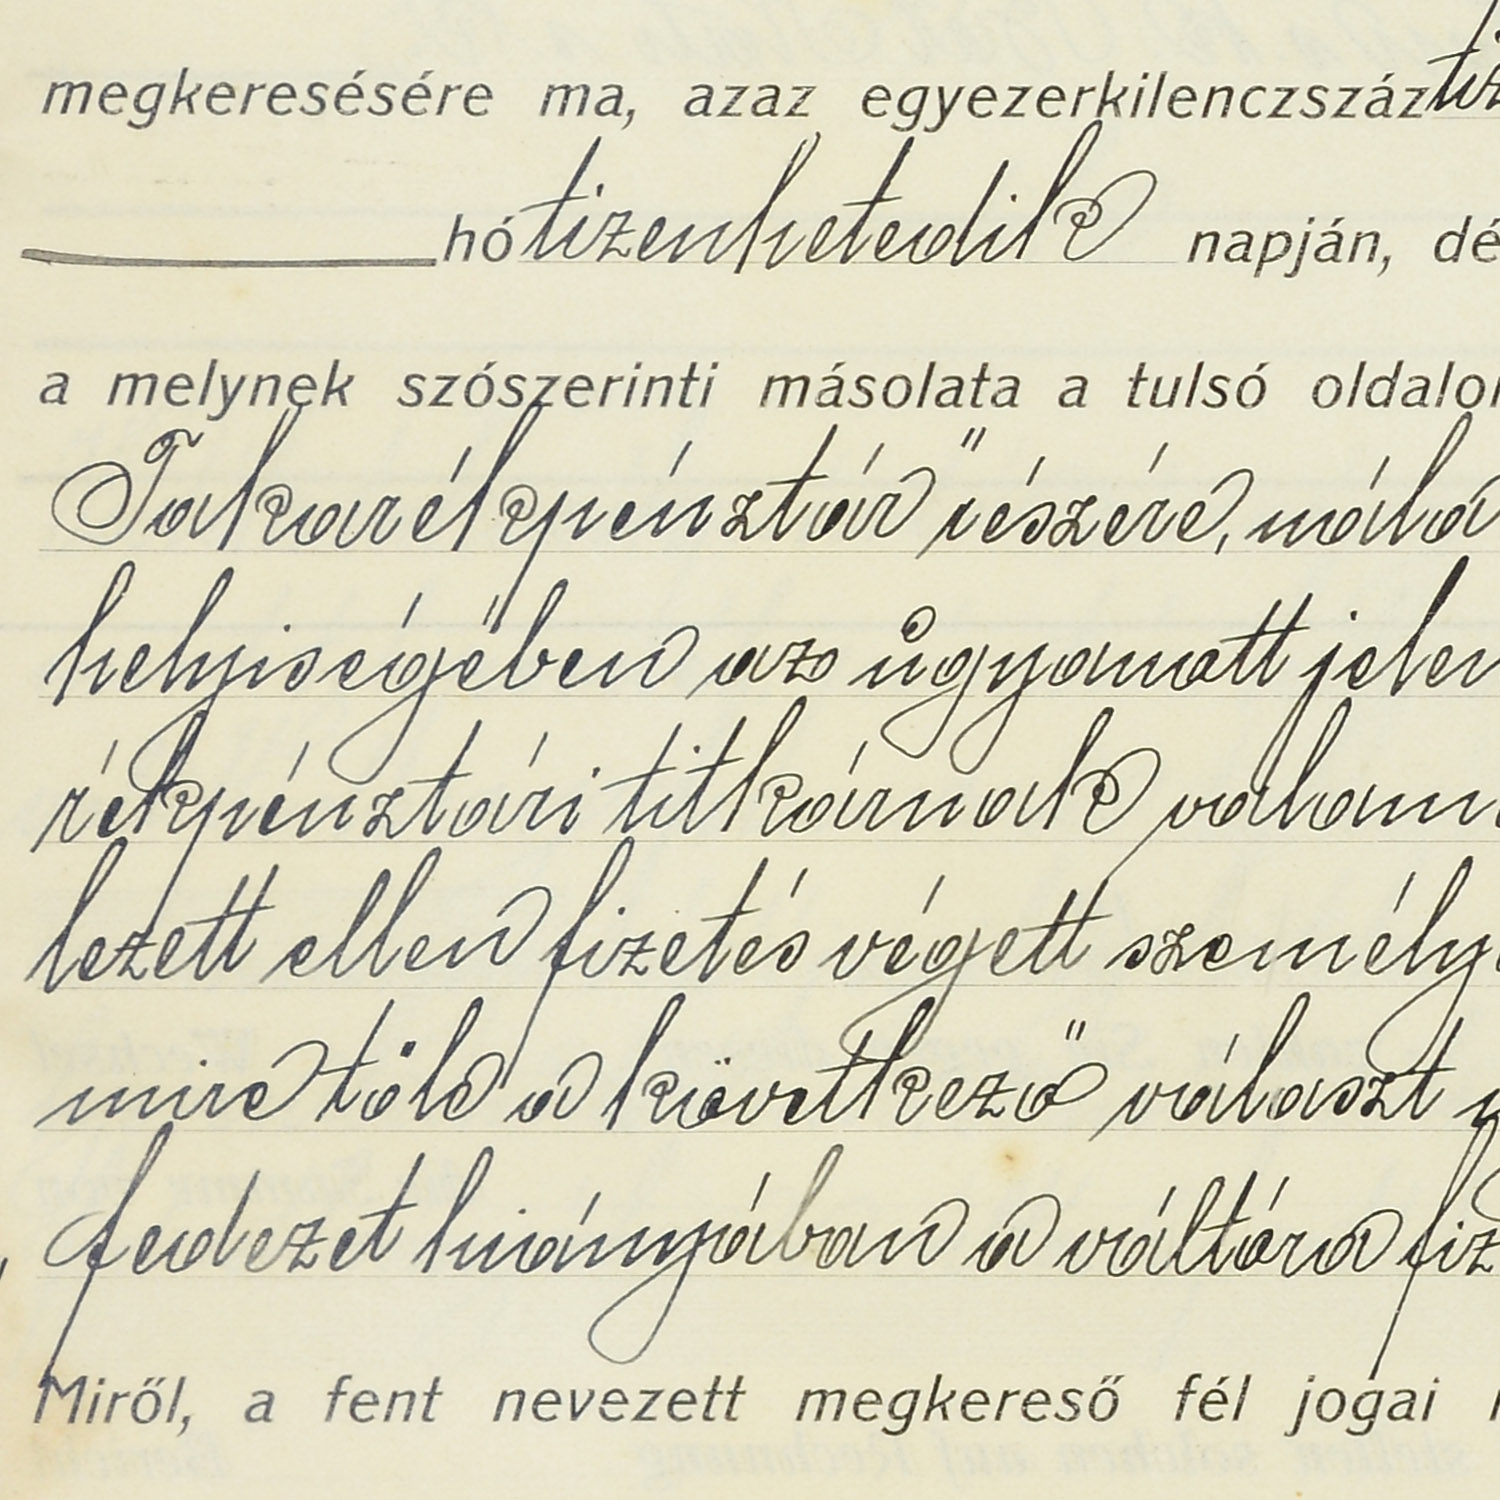 megkeresésére ma, azaz egyezerkilenczszáz
hó tizenhetedik napján, dé
a melynek szószerinti másolata a tulsó oldalon
Takarékpénztár" részére, nála
helyiségében az ügyanott jelen
rékpénztári titkárnak valam
lezett ellen fizetés végett személy
mire tőle a következő választ
fedezet hiányában a váltóra fiz
Miről, a fent nevezett megkereső fél jogai